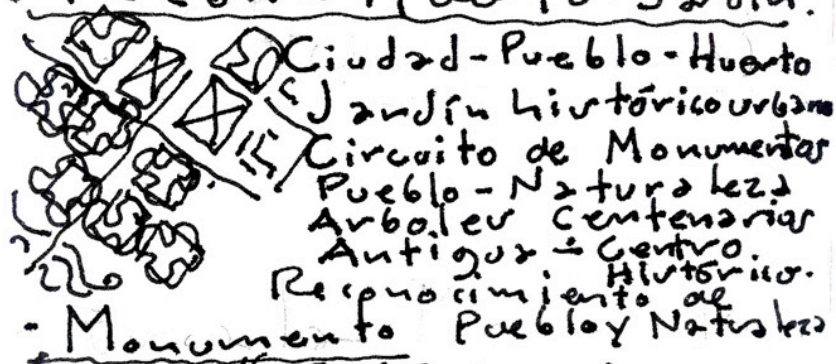 Ciudad-Pueblo-Huerto
Jardín histórico urbano
Circuito de Monumentos
Pueblo-Naturaleza
Arboles Centenarios
Antigua - Centro
Histórico.
Reconocimiento de
- Monumento Pueblo y Naturaleza